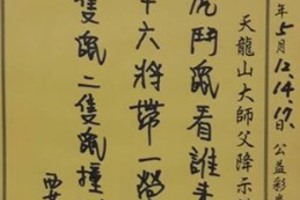 年5月12.14.17.日公益彩
天龍山大師父降示
虎鬥鼠看誰來
十六將帶一勞
隻鼠二隻鼠撞
西